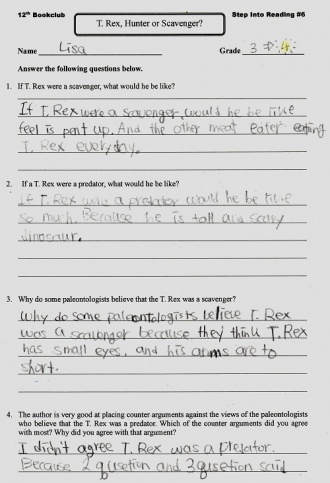 12th Bookclub
Step Into Reading #6
T. Rex, Hunter or Scavenger?
Name Lisa
Grade 3 ⇒ 4
Answer the following questions below.
1. If T. Rex were a scavenger, what would he be like?
If T. Rex were a scavenger, would he be like
feel is pent up. And the other meat eater eating
T. Rex everyday.
2. If a T. Rex were a predator, what would he be like?
If T. Rex were a predator would he be like
so much. Because he is tall and scary
dinosaur.
3. Why do some paleontologists believe that the T. Rex was a scavenger?
Why do some paleontologists believe T. Rex
was a scavenger because they think T. Rex
has small eyes, and his arms are to
short.
4. The author is very good at placing counter arguments against the views of the paleontologists
who believe that the T. Rex was a predator. Which of the counter arguments did you agree
most? Why did you agree with that argument?
I didn't agree T. Rex was a predator.
Because 2 qusetion and 3 qusetion said